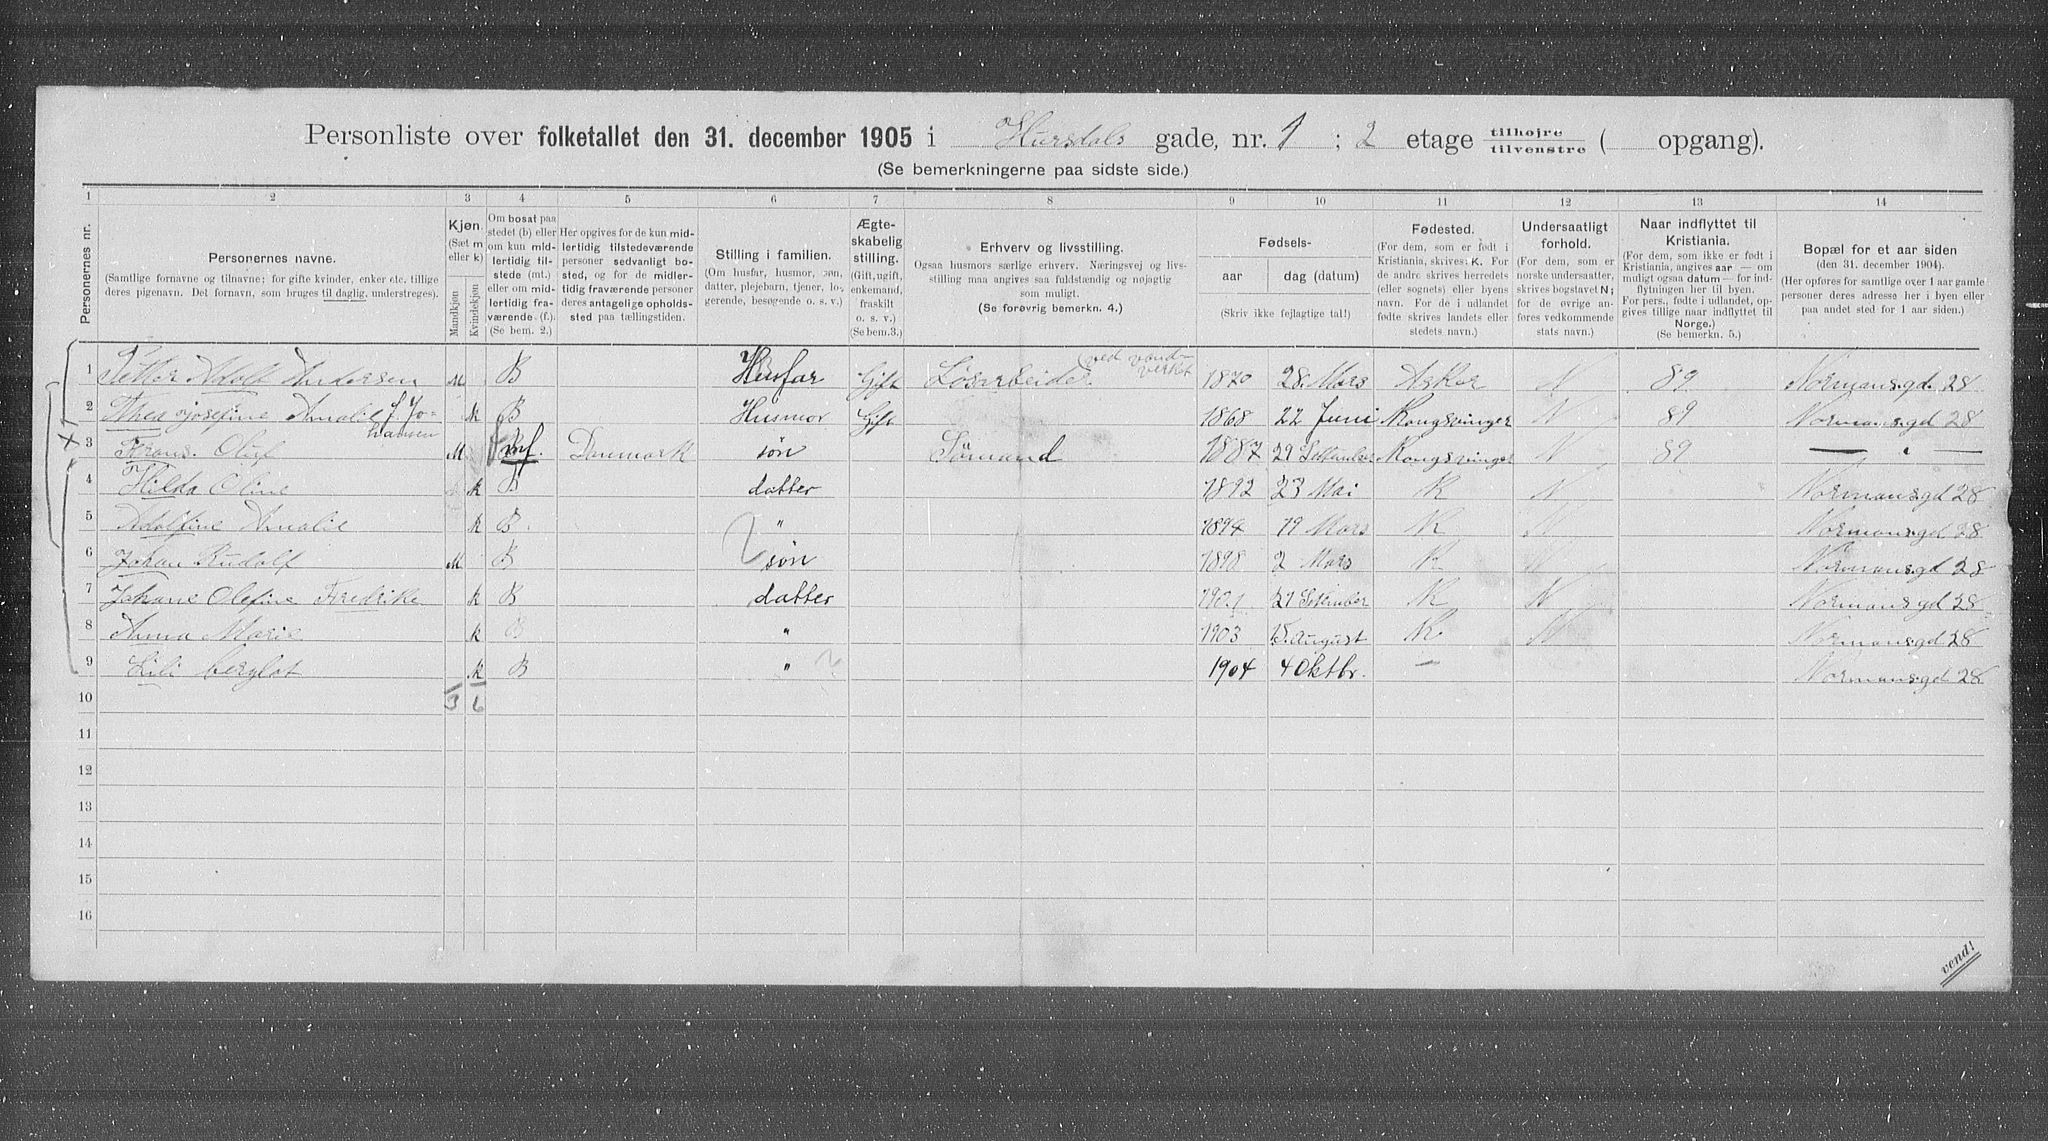 Personliste over folketallet den 31. december 1905 i Hursdals gade, nr. 1 ; 2 etage tilhøjre tilvenstre ( opgang).
(Se bemerkningerne paa sidste side.)
1 2 3 4 5 6 7 8 9 10 11 12 13 14
Personernes nr.
Personernes navne.
(Samtlige fornavne og tilnavne; for gifte kvinder, enker etc. tillige deres pigenavn. Del fornavn, som bruges til daglig, understreges).
Kjøn. (Sæt m eller k) Mandkjøn Kvindekjøn
Om bosat paa stedet (b) eller om kun midlertidig tilstede (mt.) eller om midlertidig fraværende (f.) (Se bem. 2.)
Her opgives for de kun midlertidig tilstedeværende personer sedvanlig bosted, og for de midlertidig fraværende personer deres antagelige opholdssted paa tællingstiden.
Stilling i familien.
(Om husfar, husmor, søn, datter, plejebarn, tjener, logerende, besøgende o. s. v.)
Ægteskabelig stilling.
(Gift, ugift, enkemand, fraskilt o. s. v.) (Se bem.3.)
Erhverv og livsstilling.
Ogsaa husmors særlige erhverv. Næringsvej og livsstilling maa angives saa fuldstændig og nøjagtig som muligt.
(Se forøvrig bemerkn. 4.)
Fødsels-
aar dag (datum)
(Skriv ikke fejlagtige tal!)
Fødested.
(For dem, som er født i Kristiania, skrives: K. For de andre skrives herredets (eller sognets) eller byens navn. For de i udlandet fødte skrives landets eller stedets navn.)
Undersaatligt forhold.
(For dem, som er norske undersaatter, skrives bogstavet N; for de øvrige anføres vedkommende stats navn.)
Naar indflyttet til Kristiania.
(For dem, som ikke er født i Kristiania, angives aar — om muligt ogsaa datum — for indflytningen her til byen. For pers., fødte i udlandet, opgives tillige naar indflyttet til Norge.)
(Se bemerkn. 5.)
Bopæl for et aar siden
(den 31. december 1904).
(Her opføres for samtlige over 1 aar gamle personer deres adresse her i byen eller paa andet sted for 1 aar siden.)
1 Petter Adolf Andersen M B Husfar Gift Løsarbeider ved vand-verket 1870 28 Mars Asker N 89 Normansgd. 28
2 Thea Josefine Amalie f. Johansen K B Husmor Gift 1868 22 Juni Kongsvinger N 89 Normansgd 28
3 Frans. Oluf M f. Danmark søn Sømand 1887 29 September Kongsvinger N 89 — " —
4 Hilda Oline k B datter 1892 23 Mai K N Normansgd 28
5 Adolfine Amalie k B " 1894 19 Mars K N Normansgd 28
6 Johan Rudolf M B søn 1898 2 Mars K N Normansgd 28
7 Johane Olefine Fredrike k B datter 1901 21 September K N Normansgd 28
8 Anna Marie k B " 1903 15 August K N Normansgd 28
9 Lili bergliot k B " 1904 4 Oktbr. — Normansgd 28
10 3 6
11
12
13
14
15
16
X1
vend!